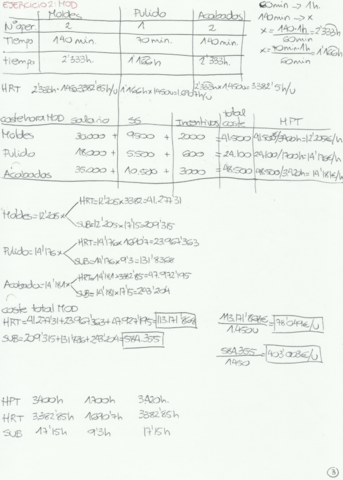 EJERCICIO 2: MOD
Moldes Pulido Acabados
Nº oper 2 1 2
Tiempo 140min. 70min. 140min
tiempo 2'333h 1'166h 2'333h
60min → 1h
140min → x
x = 140·1h = 2'333h
60min
x = 70min·1h = 1'166h
60min
HRT
coste hora MOD salario SS Incentivos total coste HPT
Moldes 30.000 + 9500 + 2000 = 41.500 41.500/3400h = 12'205€/h
Pulido 18.000 + 5.500 + 600 = 24.100 24.100/1700h = 14'176€/h
Acabados 35.000 + 10.500 + 3000 = 48.500 48.500/3420h = 14'181€/h
Moldes = 12'205 x
HRT = 12'205 x 3382 = 41.277'31
SUB = 12'205 x 17'15 = 209'315
Pulido = 14'176 x
HRT = 14'176 x 1690'7 = 23.967'363
SUB = 14'176 x 9'3 = 131'8368
Acabado = 14'181 x
HRT = 14'181 x 3382'85 = 47.972'95
SUB = 14'181 x 17'15 = 243'204
coste total MOD
HRT = 41.277'31 + 23.967'363 + 47.927'195 =
SUB = 209'315 + 131'836 + 243'204 = 584.355
1.450
584.355
1450
HPT 3400h 1700h 3420h
HRT 3382'85h 1690'7h 3382'85h
SUB 17'15h 9'3h 17'15h
3